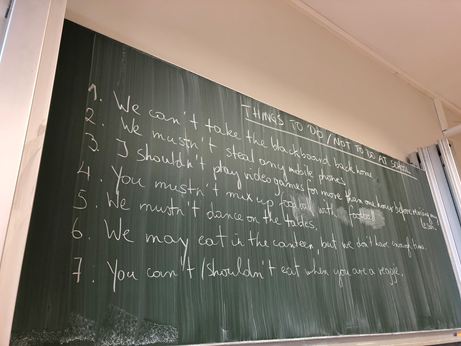 THINGS TO DO / NOT TO DO AT SCHOOL
1. We can't take the blackboard back home.
2. We mustn't steal any mobile phone.
3. I shouldn't play video games for more than one hour before
4. You mustn't mix up football with
5. We mustn't dance on the tables.
6. We may eat in the canteen, but we don't have enough time.
7. You can't/shouldn't eat when you are a veggie.